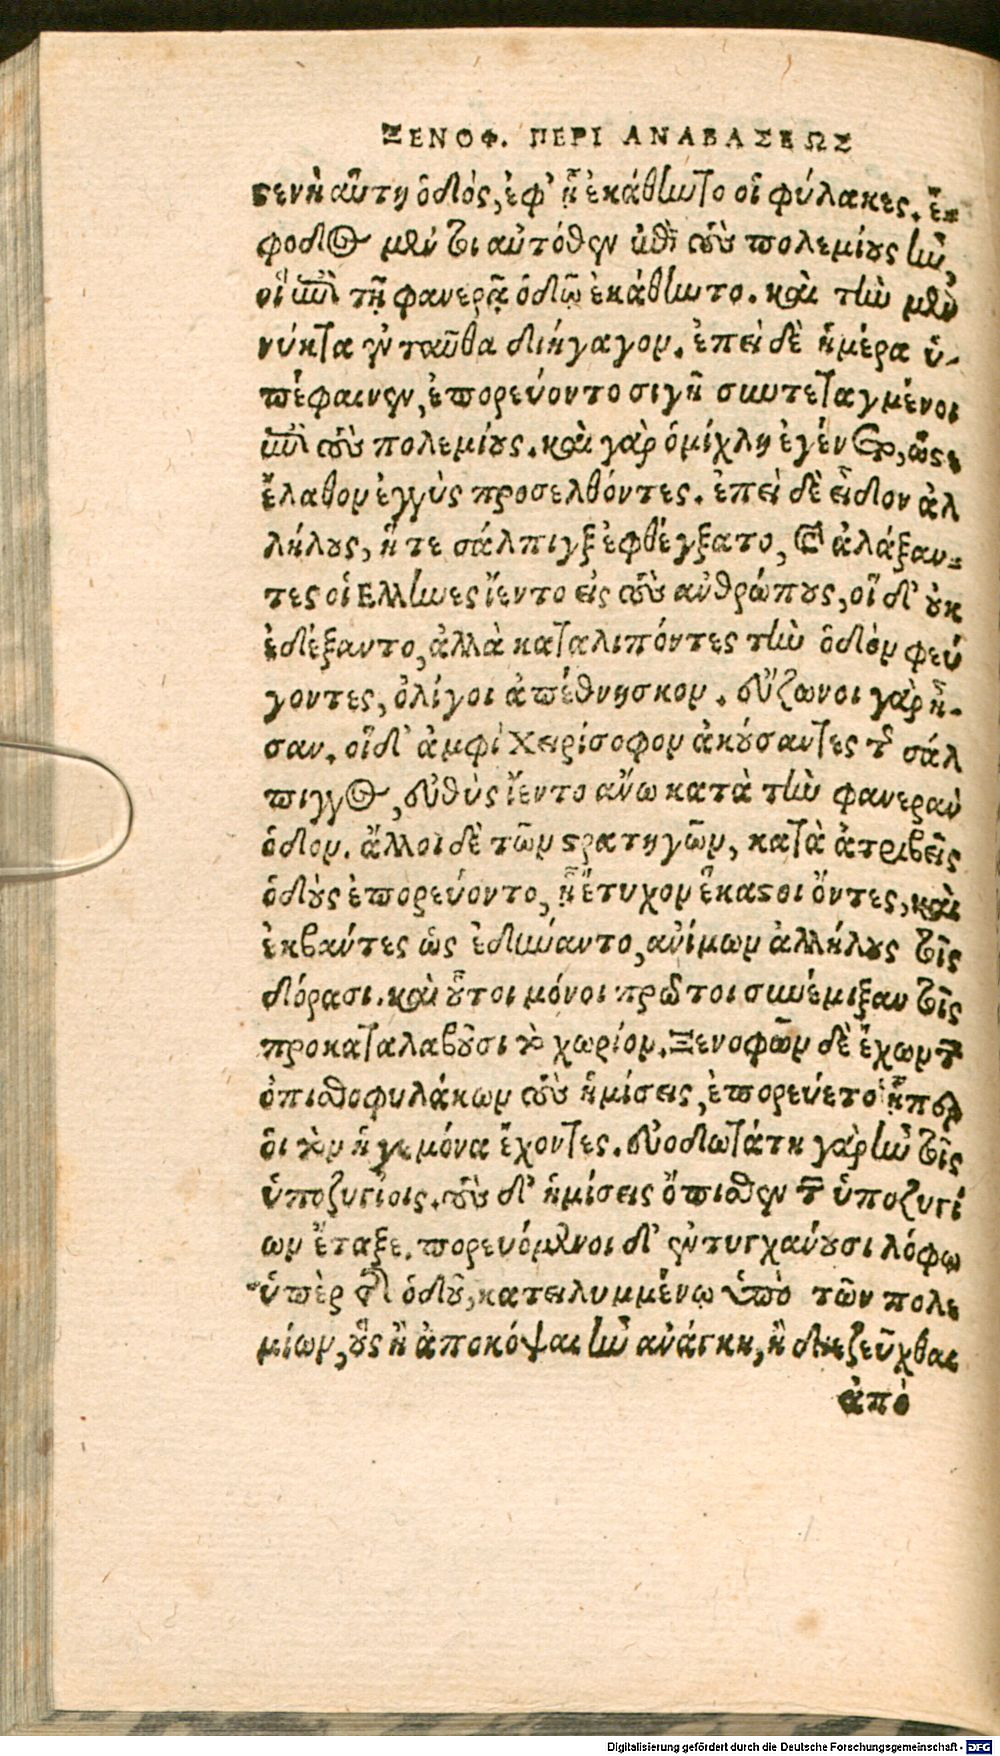 ΞΕΝΟΦ. ΠΕΡΙ ΑΝΑΒΑΣΕΩΣ
στενὴ αὕτη ὁδὸς, ἐφ' ᾗ ἐκάθηντο οἱ φύλακες. ἔ-
φοδος μέν τοι αὐτόθεν ἐπὶ τοὺς πολεμίους ἦν,
οἳ ἐπὶ τῇ φανερᾷ ὁδῷ ἐκάθηντο. καὶ τὴν μὲν
νύκτα ἐνταῦθα διήγαγον. ἐπεὶ δὲ ἡμέρα ὑ-
πέφαινεν, ἐπορεύοντο σιγῇ συντεταγμένοι
ἐπὶ τοὺς πολεμίους. καὶ γὰρ ὁμίχλη ἐγένετο, ὥστε
ἔλαθον ἐγγὺς προσελθόντες. ἐπεὶ δὲ εἶδον ἀλ
λήλους, ἥ τε σάλπιγξ ἐφθέγξατο, καὶ ἀλάξαν-
τες οἱ Ελληνες ἵεντο εἰς τοὺς ἀνθρώπους, οἳ δ' οὐκ
ἐδέξαντο, ἀλλὰ καταλιπόντες τὴν ὁδὸν φεύ
γοντες, ὀλίγοι ἀπέθνησκον. εὔζωνοι γὰρ ἦ-
σαν. οἳ δ' ἀμφὶ Χειρίσοφον ἀκούσαντες τῆς σάλ
πιγγος, εὐθὺς ἵεντο ἄνω κατὰ τὴν φανερὰν
ὁδον. ἄλλοι δὲ τῶν στρατηγῶν, κατὰ ἀτριβεῖς
ὁδοὺς ἐπορεύοντο, ᾗ ἔτυχον ἕκαστοι ὄντες, καὶ
ἐκβάντες ὡς ἐδύναντο, ἀνίμων ἀλλήλους τοῖς
δόρασι. καὶ οὗτοι μόνοι πρῶτοι συνέμιξαν τοῖς
προκαταλαβοῦσι τὸ χωρίον. Ξενοφῶν δὲ ἔχων τῶν
ὀπισθοφυλάκων τοὺς ἡμίσεις, ἐπορεύετο ᾗπερ
οἱ τὸν ἡγεμόνα ἔχοντες. εὐοδωτάτη γὰρ ἦν τοῖς
ὑποζυγίοις. τοὺς δ' ἡμίσεις ὄπισθεν τῶν ὑποζυγί
ων ἔταξε. πορευόμενοι δ' ἐντυγχάνουσι λόφῳ
ὑπὲρ τῆς ὁδοῦ, κατειλυμμένῳ ὑπὸ τῶν πολε
μίων, οὓς ἢ ἀποκόψαι ἦν ἀνάγκη, ἢ διεζεῦχθαι
ἀπὸ
Digitalisierung gefördert durch die Deutsche Forschungsgemeinschaft - DFG